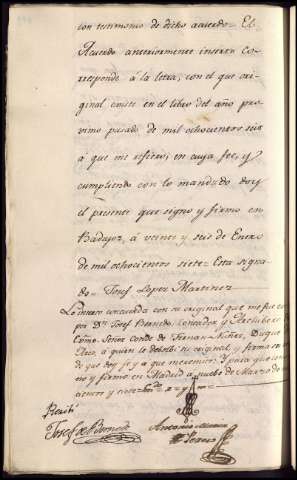 con testimonio de dicho acuerdo. El
Acuerdo anteriormente inserto co-
rresponde á la letra, con el que ori-
ginal existe en el libro del año pro-
ximo pasado de mil ochocientos seis
á que me refiero; en cuya fee, y
cumpliendo con lo mandado doy
el presente que signo y firmo en
Badajoz, á veinte y seis de Enero
de mil ochocientos siete. Esta signa-
do. Josef Lopez Martinez
Lo inserto concuerda con su original que me fue
por Dn. Josef Bernedo, Contador y Archibero
Exmo. Señor Conde de Fernan Nuñez, Duque
á quien le debolbi su original, y firma
de que doy fe y a que me remito: Y para que
no y firmo en Madrid a nuebe de Marzo de
Recibi
Josef de Bernedo
Antonio